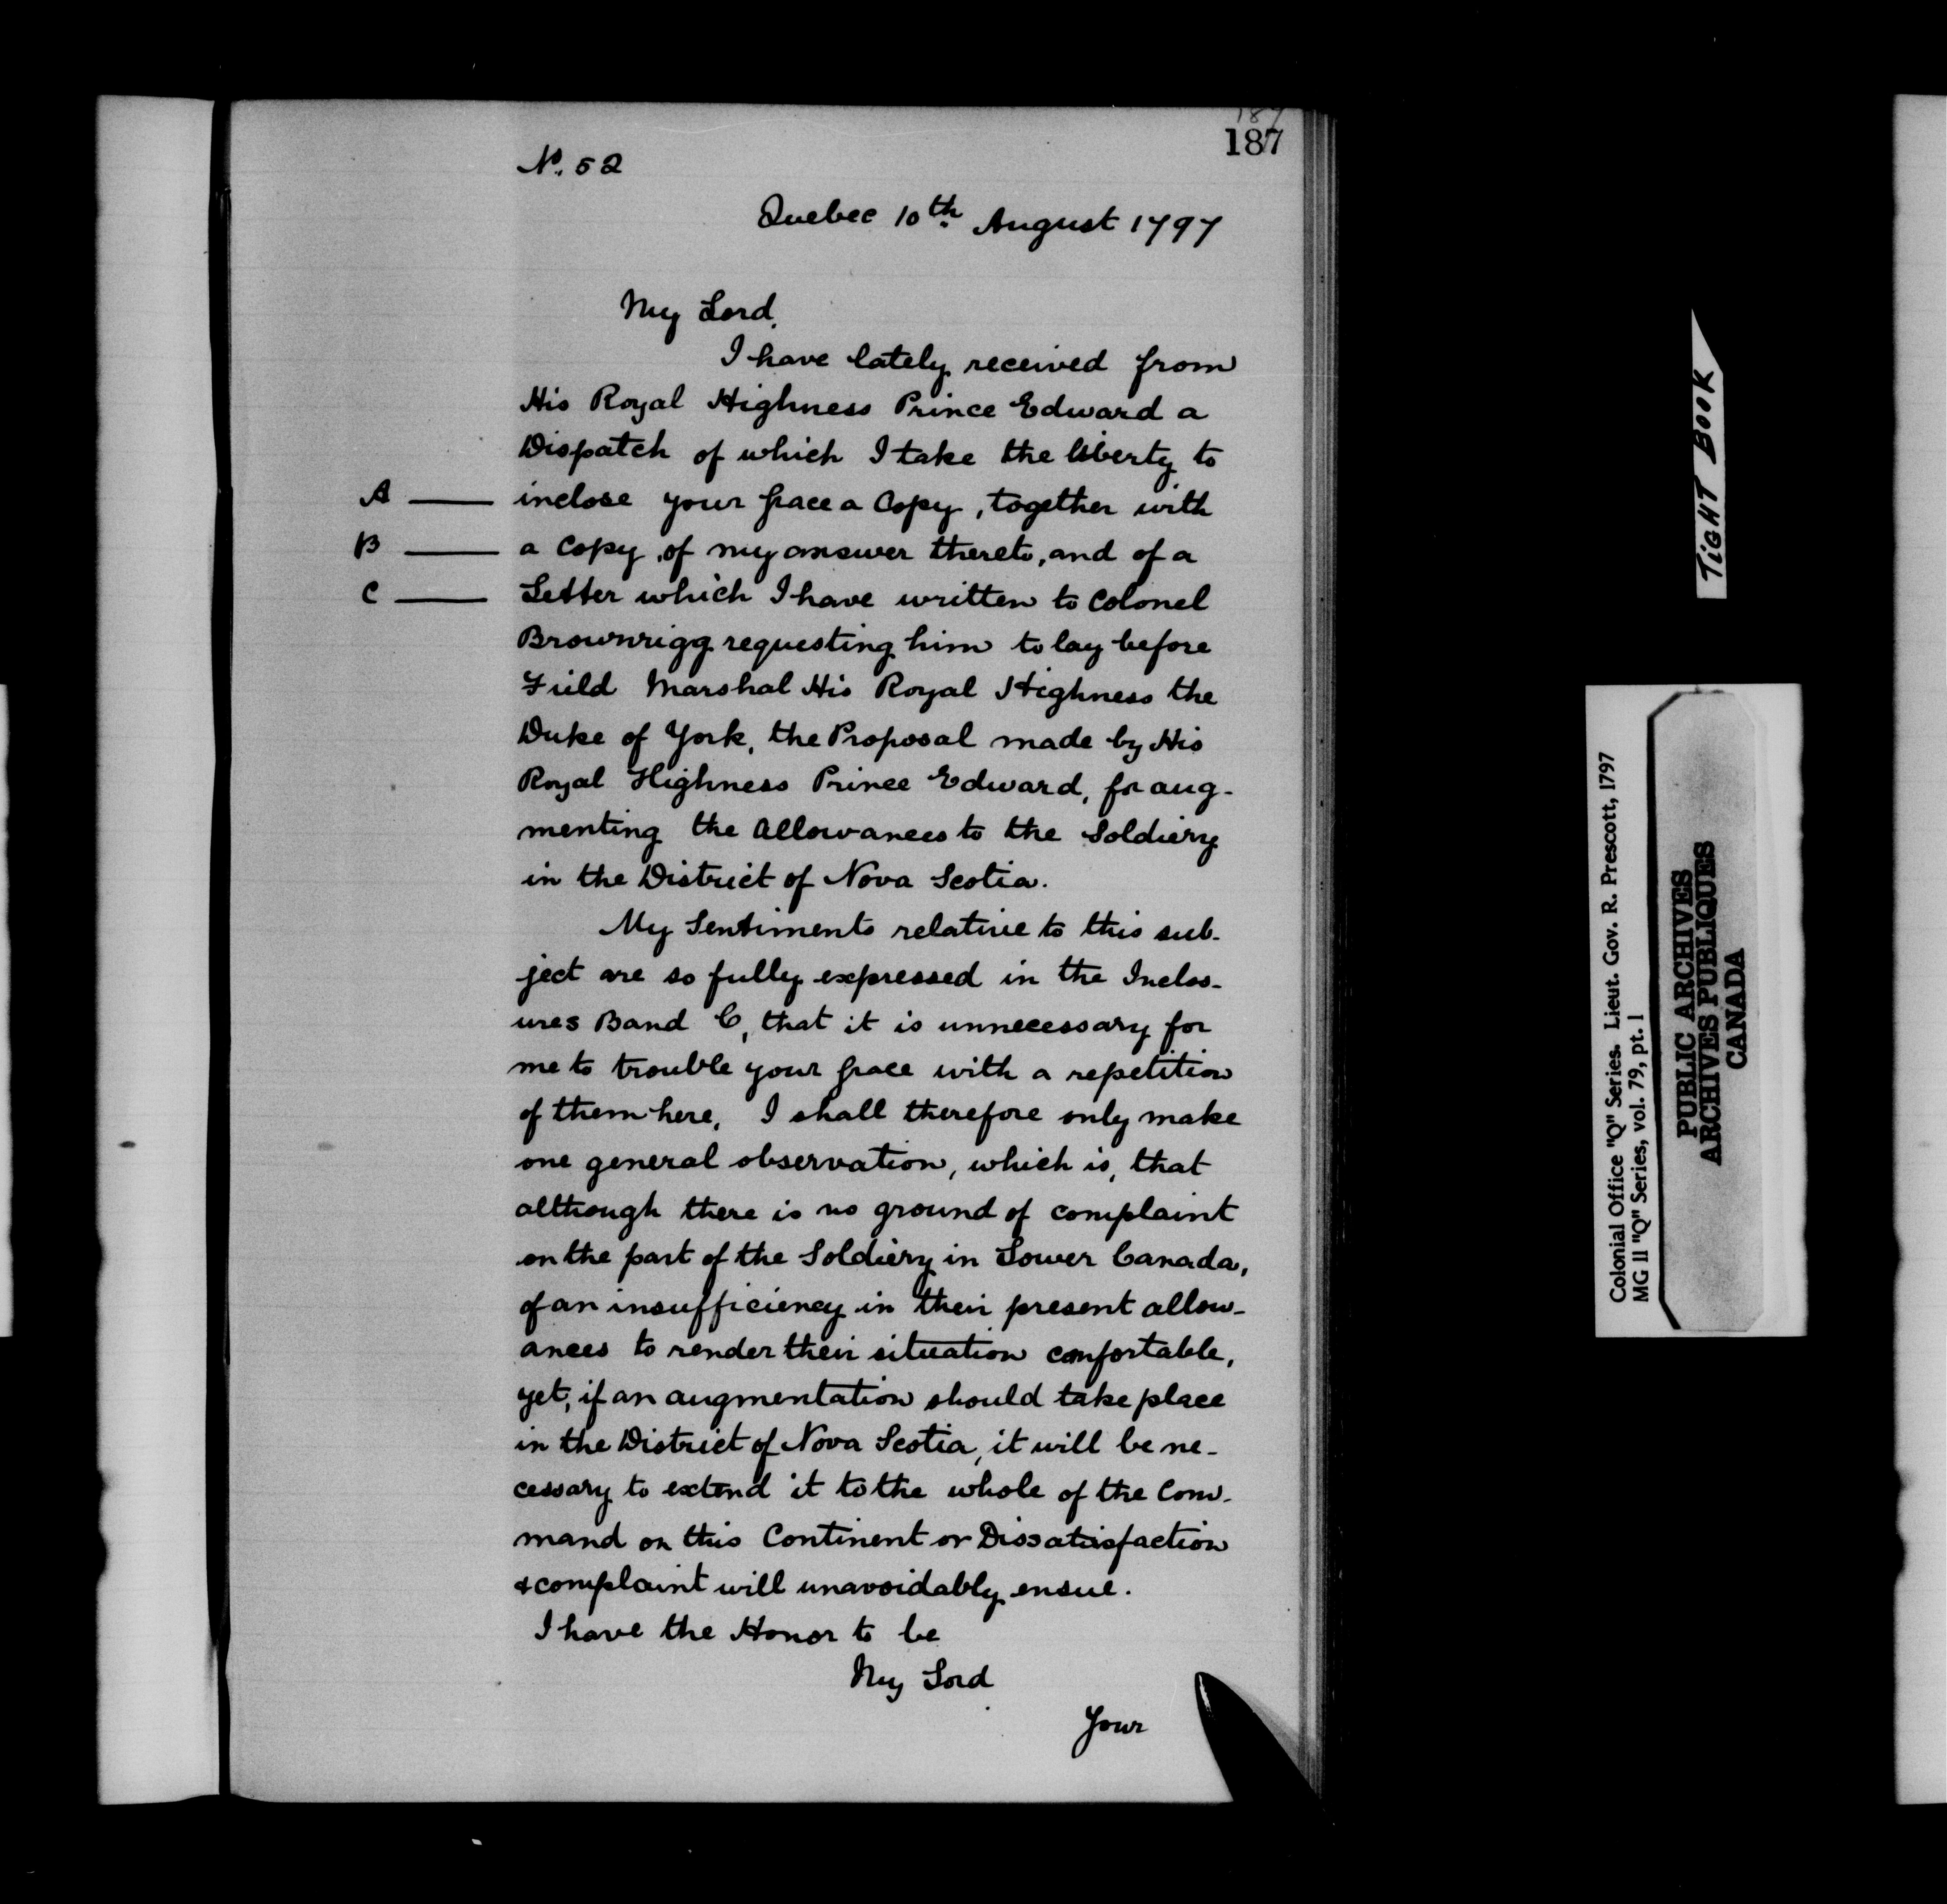 187
187
No. 52
Quebec 10th August 1797
My Lord,
I have lately received from
His Royal Highness Prince Edward a
Dispatch of which I take the liberty to
A — inclose your Grace a Copy, together with
B — a Copy of my answer thereto, and of a
C — Letter which I have written to Colonel
Brownrigg requesting him to lay before
Field Marshal His Royal Highness the
Duke of York, the Proposal made by His
Royal Highness Prince Edward, for aug-
menting the Allowances to the Soldiery
in the District of Nova Scotia.
My Sentiments relative to this sub-
ject are so fully expressed in the Inclos-
ures B and C, that it is unnecessary for
me to trouble your Grace with a repetition
of them here, I shall therefore only make
one general observation, which is, that
although there is no ground of complaint
on the part of the Soldiery in Lower Canada,
of an insufficiency in their present allow-
ances to render their situation comfortable,
yet, if an augmentation should take place
in the District of Nova Scotia, it will be ne-
cessary to extend it to the whole of the Com-
mand on this Continent or Dissatisfaction
& complaint will unavoidably ensue.
I have the Honor to be
My Lord
Your
TIGHT BOOK
Colonial Office "Q" Series. Lieut. Gov. R. Prescott, 1797
MG 11 "Q" Series, vol. 79, pt. 1
PUBLIC ARCHIVES
ARCHIVES PUBLIQUES
CANADA